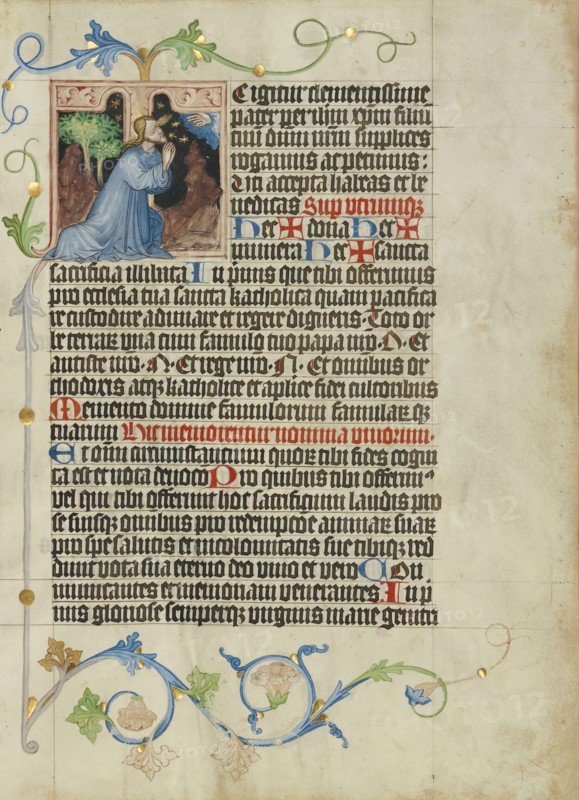 TE igitur clementissime
pater per ihm xpm filiū
tuū dnm nrm supplices
rogamus ac petimus:
Uti accepta habeas et be
nedicas Sup utrumqꝫ
Hec ✠ dona Hec ✠
munera Hec ✠ sancta
sacrificia illibata In pmis que tibi offerimus
pro ecclesia tua sancta katholica quam pacifica
re custodire adunare et regere digneris. Toto or
be terraꝝ una cum famulo tuo papa nro .N. Et
antiste nro .N. Et rege nro .N. Et omibus or
thodoxis atqꝫ katholice et aplice fidei cultoribus
Memento domine famulorum famulaꝝ qꝫ
tuarum Hic memorentur nomina vivorum.
Et oīm circumstancium quoꝝ tibi fides cogni
ta est et nota devocō Pro quibus tibi offerimꝰ
vel qui tibi offerunt hoc sacrificium laudis pro
se suisqꝫ omibus pro redempcōe animaꝝ suaꝝ
pro spe salutis et incolomitatis sue tibiqꝫ red
dunt vota sua eterno deo vivo et vero COm
municantes et memoriam venerantes. In p
mis gloriose semperqꝫ virginis marie genitri